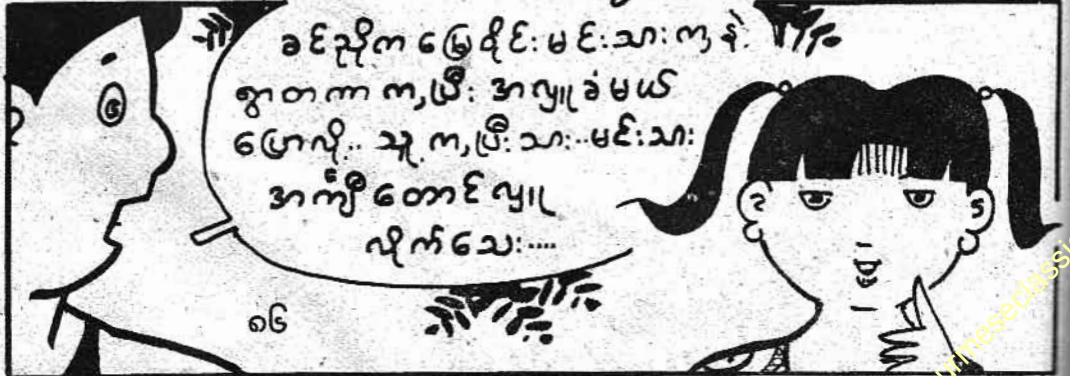 ခင်ညိုက မြေဝိုင်းမင်းသားကနဲ့
ရွာတကာ က,ပြီး အလှူခံမယ်
ပြောလို့.. သူ က,ပြီးသား..မင်းသား
အင်္ကျီ တောင် လှူ
လိုက်သေး....
၈၆